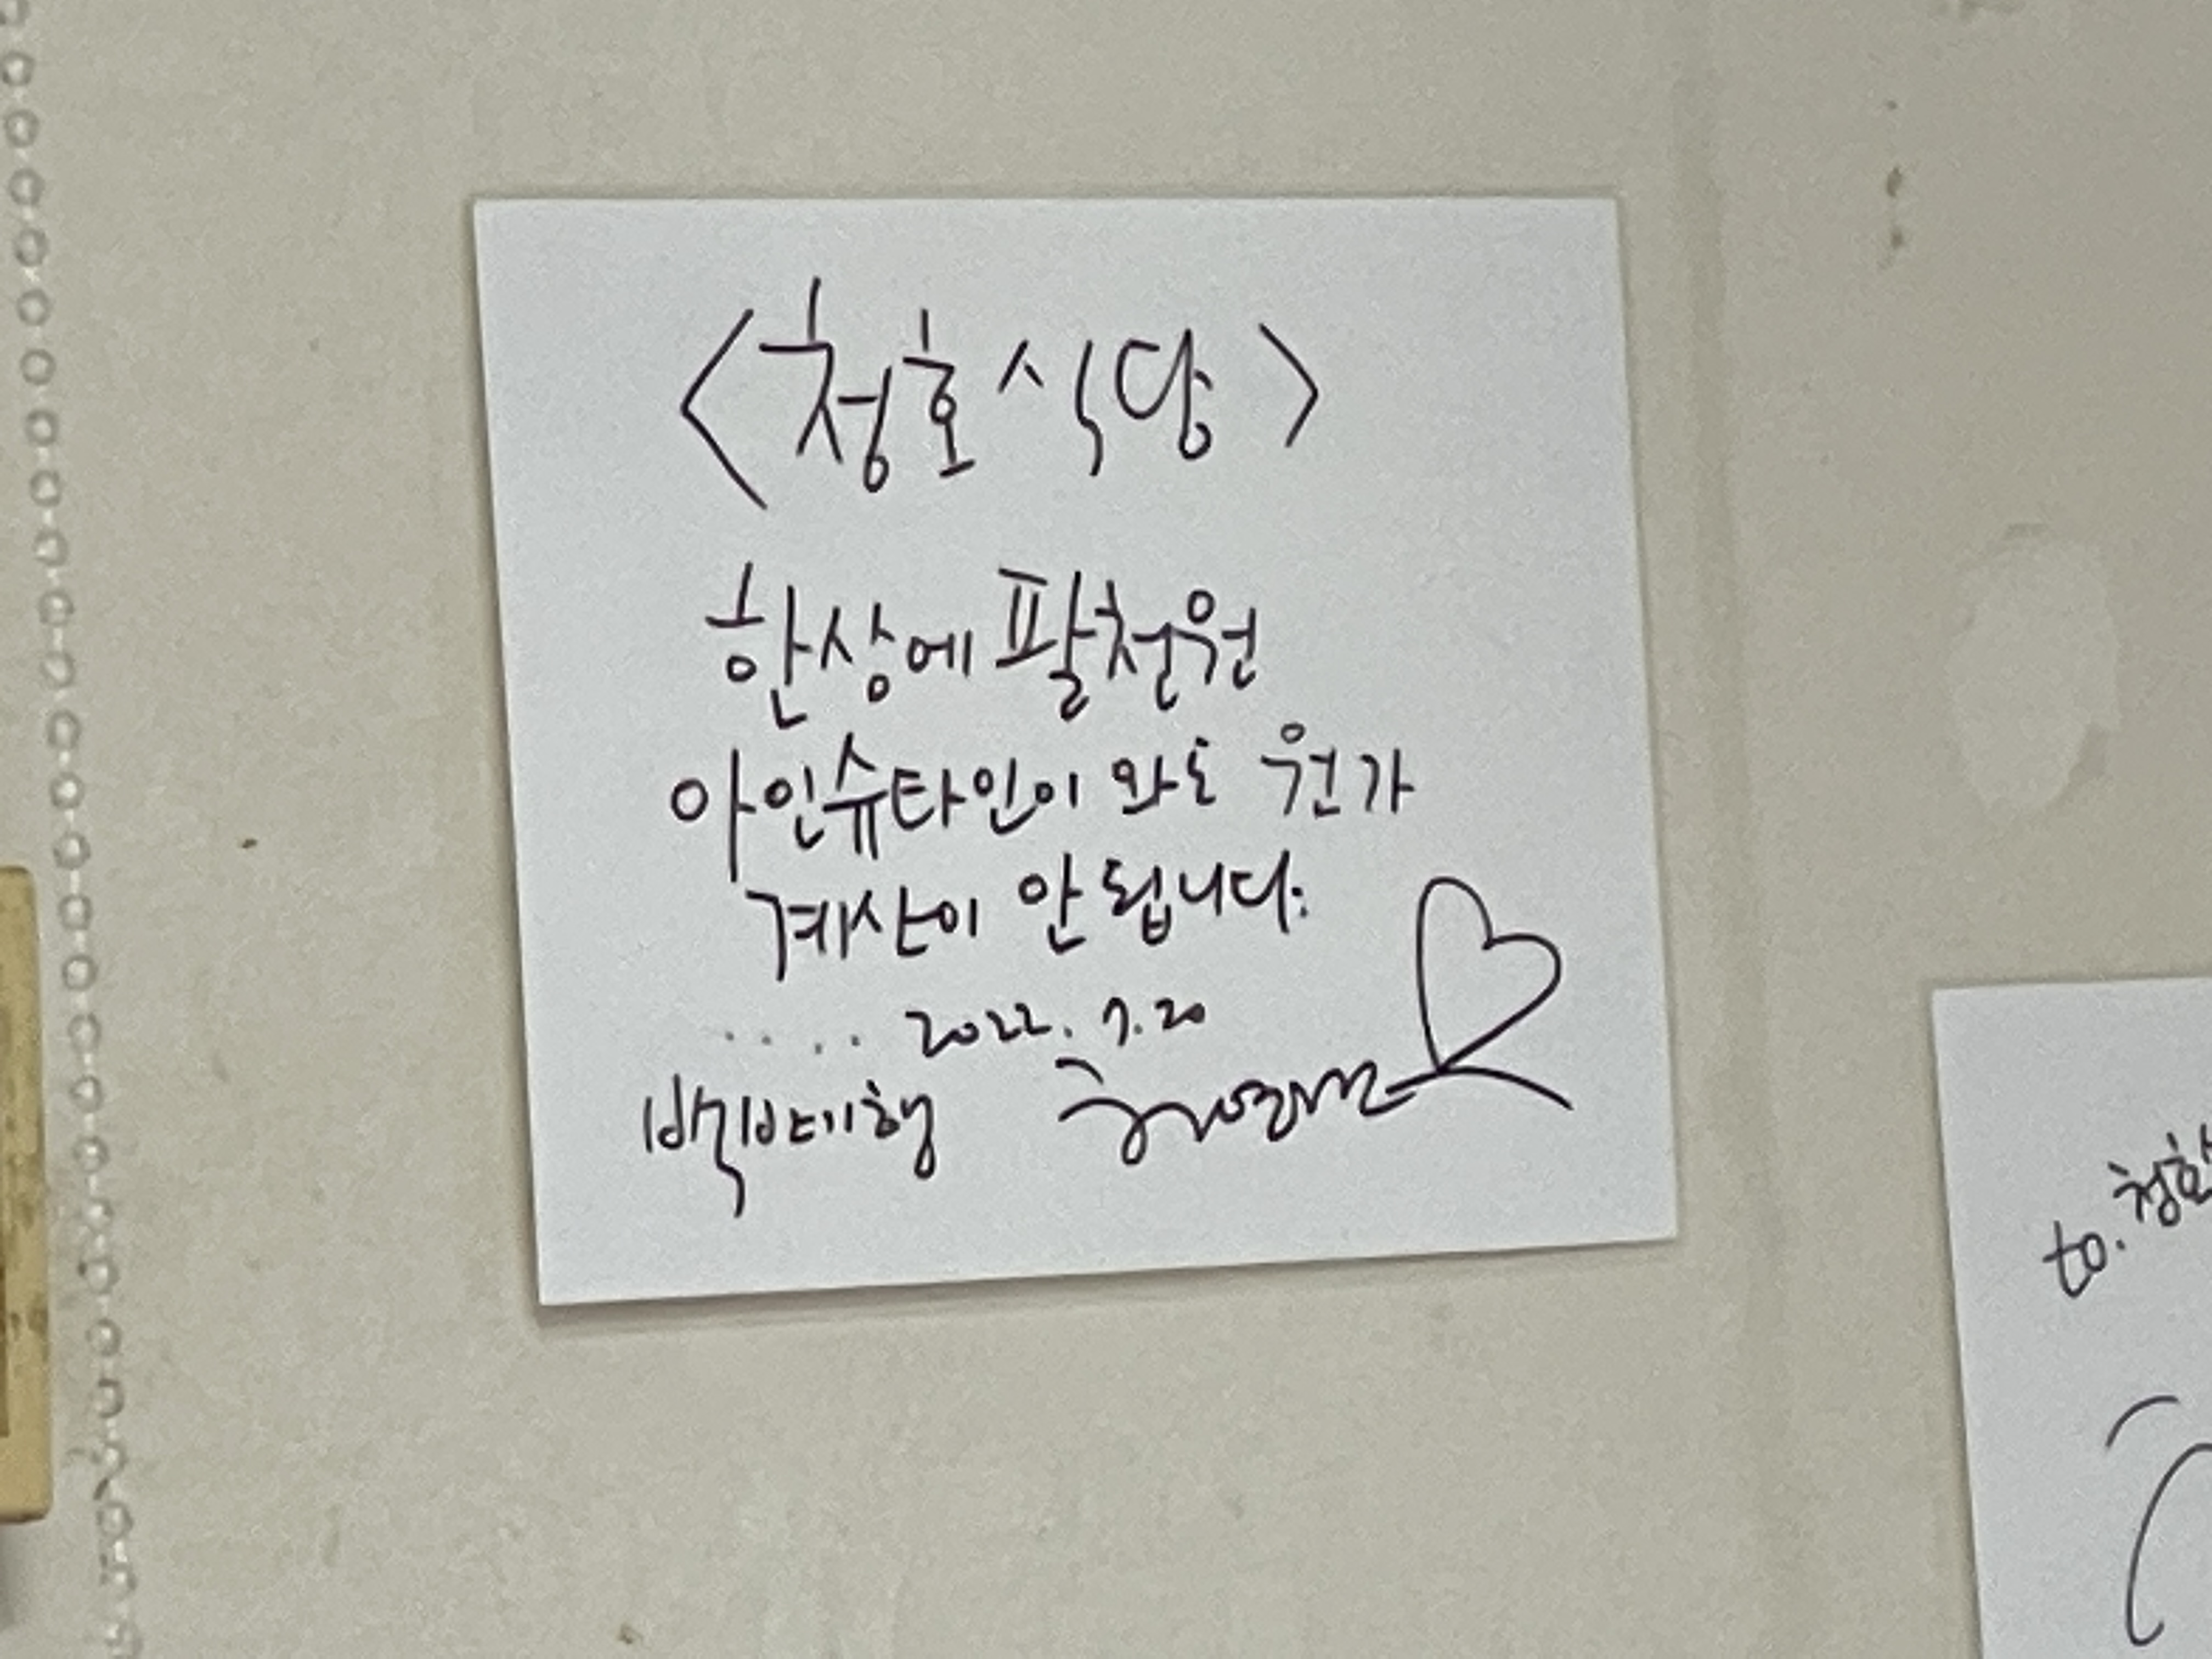 <청호식당>
한상에 팔천원
아인슈타인이 와도 원가
계산이 안 됩니다.
..... 2022. 7. 20
백반기행
to. 청호